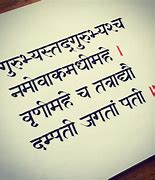 गुरुभ्यस्तद्गुरुभ्यश्च
नमोवाकमधीमहे ।
वृणीमहे च तत्राद्यौ
दम्पती जगतां पती ॥